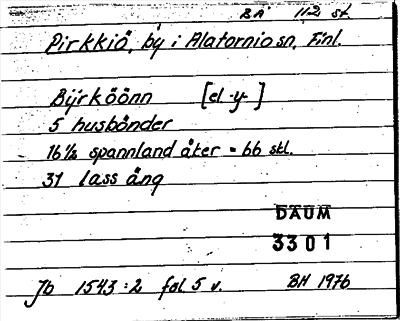 BÅ 112 st.
Pirkkiö, by i Alatornio sn, Finl.
Bijrköönn [el -y-]
5 husbönder
16 1/2 spannland åker = 66 skl.
31 lass äng
DAUM
3301
Jb 1543:2 fol. 5 v. BH 1976